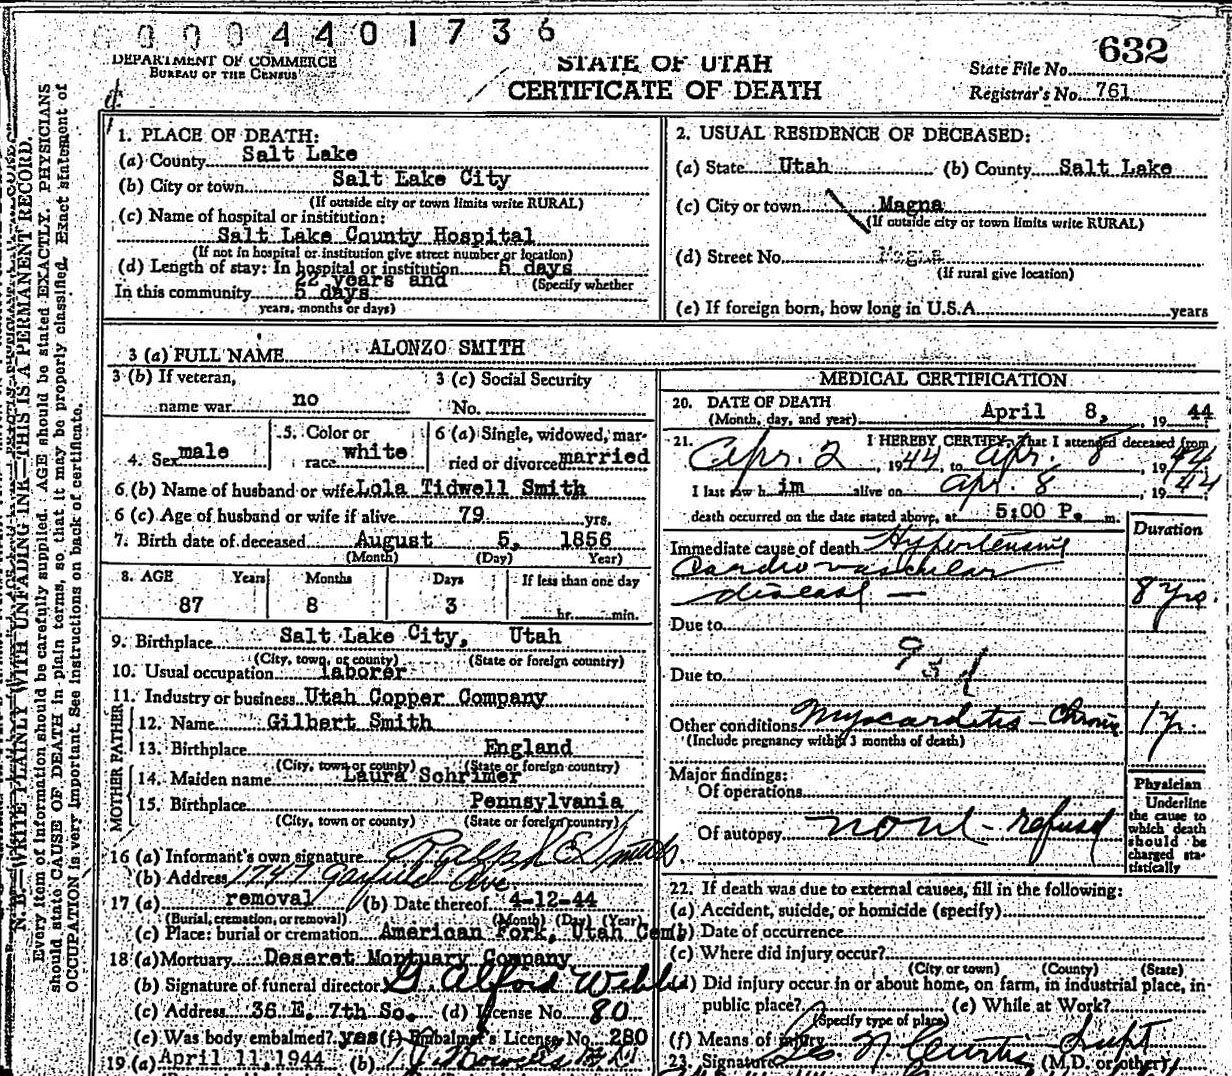 0004401736
DEPARTMENT OF COMMERCE
BUREAU OF THE CENSUS
STATE OF UTAH
CERTIFICATE OF DEATH
State File No. 632
Registrar's No. 761
N. B.—WRITE PLAINLY WITH UNFADING INK—THIS IS A PERMANENT RECORD.
Every item of information should be carefully supplied. AGE should be stated EXACTLY. PHYSICIANS
should state CAUSE OF DEATH in plain terms, so that it may be properly classified. Exact statement of
OCCUPATION is very important. See instructions on back of certificate.
1. PLACE OF DEATH:
(a) County Salt Lake
(b) City or town Salt Lake City
(If outside city or town limits write RURAL)
(c) Name of hospital or institution:
Salt Lake County Hospital
(If not in hospital or institution give street number or location)
(d) Length of stay: In hospital or institution 5 days
22 years and (Specify whether
In this community 5 days
years, months or days)
2. USUAL RESIDENCE OF DECEASED:
(a) State Utah (b) County Salt Lake
(c) City or town Magna
(If outside city or town limits write RURAL)
(d) Street No. Magna
(If rural give location)
(e) If foreign born, how long in U.S.A. years
3 (a) FULL NAME ALONZO SMITH
3 (b) If veteran,
name war no
3 (c) Social Security
No.
4. Sex male
5. Color or
race white
6 (a) Single, widowed, mar-
ried or divorced married
6 (b) Name of husband or wife Lola Tidwell Smith
6 (c) Age of husband or wife if alive 79 yrs.
7. Birth date of deceased August 5, 1856
(Month) (Day) (Year)
8. AGE Years Months Days If less than one day
87 8 3 hr. min.
9. Birthplace Salt Lake City, Utah
(City, town, or county) (State or foreign country)
10. Usual occupation laborer
11. Industry or business Utah Copper Company
FATHER
12. Name Gilbert Smith
13. Birthplace England
(City, town or county) (State or foreign country)
MOTHER
14. Maiden name Laura Schrimer
15. Birthplace Pennsylvania
(City, town or county) (State or foreign country)
16 (a) Informant's own signature Ralph E Smith
(b) Address 1747 Garfield Ave.
17 (a) removal (b) Date thereof 4-12-44
(Burial, cremation, or removal) (Month) (Day) (Year)
(c) Place: burial or cremation American Fork, Utah Cem
18 (a) Mortuary Deseret Mortuary Company
(b) Signature of funeral director G. Alford Webb
(c) Address 36 E. 7th So. (d) License No. 80
(e) Was body embalmed? yes (f) Embalmer's License No. 280
19 (a) April 11, 1944 (b)
MEDICAL CERTIFICATION
20. DATE OF DEATH
(Month, day, and year) April 8, 19 44
21. I HEREBY CERTIFY, That I attended deceased from
Apr. 2, 1944, to Apr. 8, 1944
I last saw him alive on Apr. 8, 1944
death occurred on the date stated above, at 5:00 P. m.
Duration
Immediate cause of death Hypertensive
Cardiovascular
disease — 8 yrs.
Due to
93d
Due to
Other conditions Myocarditis - Chronic 1 yr.
(Include pregnancy within 3 months of death)
Major findings:
Of operations
Of autopsy none - refused
Physician
Underline
the cause to
which death
should be
charged sta-
tistically
22. If death was due to external causes, fill in the following:
(a) Accident, suicide, or homicide (specify)
(b) Date of occurrence
(c) Where did injury occur?
(City or town) (County) (State)
(d) Did injury occur in or about home, on farm, in industrial place, in
public place? (e) While at Work?
(Specify type of place)
(f) Means of injury Supt
23. Signature Leo N. Curtis (M.D. or other)